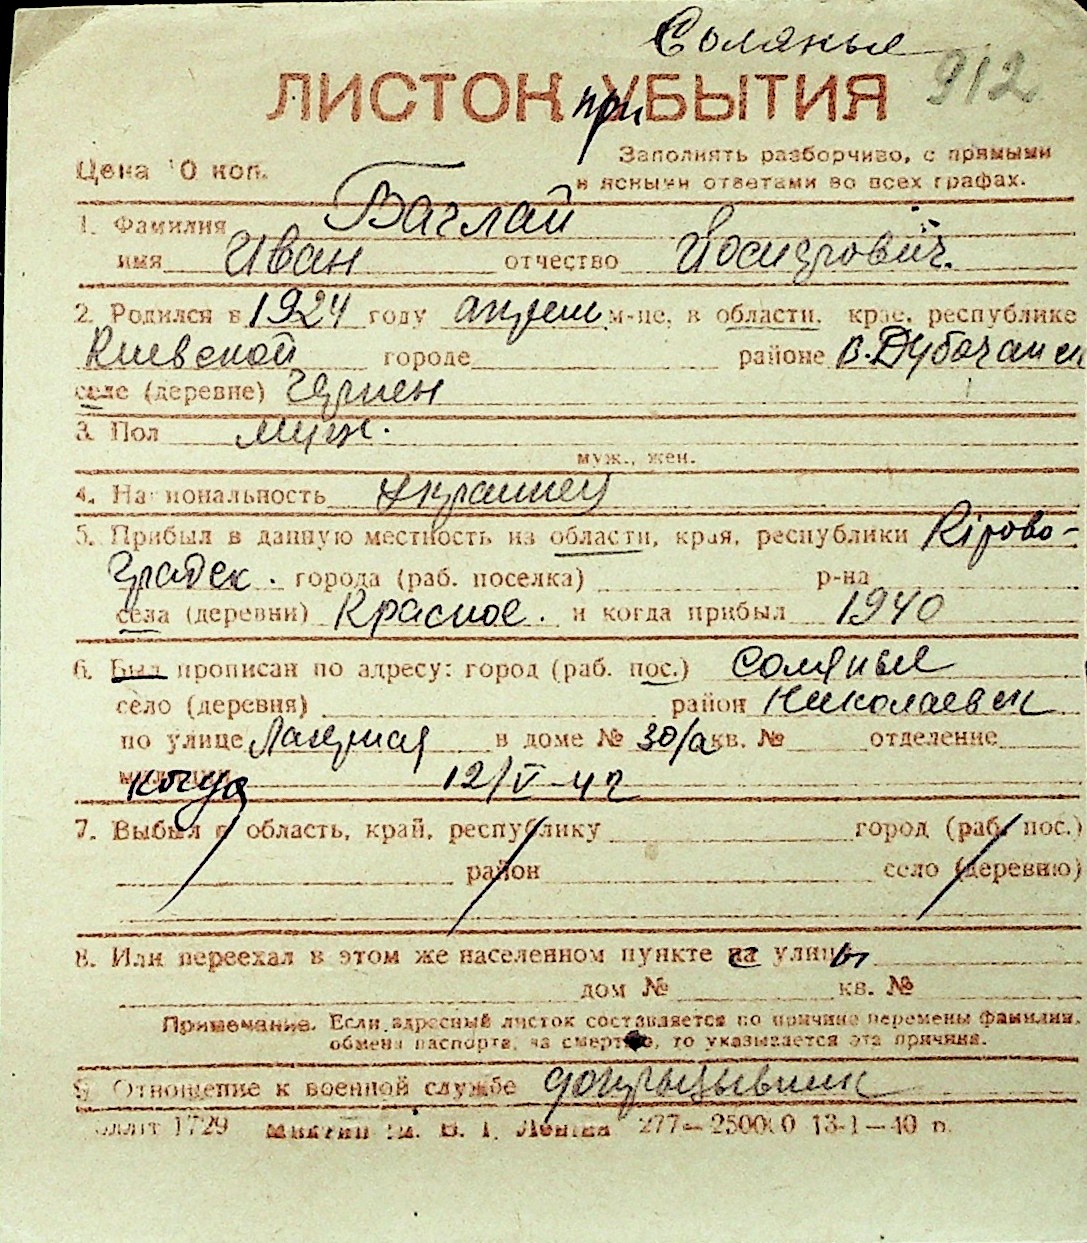 Соляные
912
ЛИСТОК при УБЫТИЯ
Цена 10 коп.
Заполнять разборчиво, с прямыми
и ясными ответами во всех графах.
1. Фамилия Баглай
имя Иван отчество Йосипович.
2. Родился в 1924 году апреле м-це, в области, крае, республике
Киевской городе районе В.Дубочанск
селе (деревне)
3. Пол муж.
муж., жен.
4. Национальность украинец
5. Прибыл в данную местность из области, края, республики Кірово-
градск. города (раб. поселка) р-на
села (деревни) Красное. и когда прибыл 1940
6. Был прописан по адресу: город (раб. пос.) Соляные
село (деревня) район Николаевск
по улице в доме № 30/а кв. № отделение
милиции когда 12/V-42
7. Выбыл в область, край, республику город (раб. пос.)
район село (деревню)
8. Или переехал в этом же населенном пункте с улицы
дом № кв. №
Примечание. Если адресный листок составляется по причине перемены фамилии,
обмена паспорта, за смертью, то указывается эта причина.
9. Отношение к военной службе допризывник
1729 им. В. І. Леніна 277—250000 13-1—40 р.